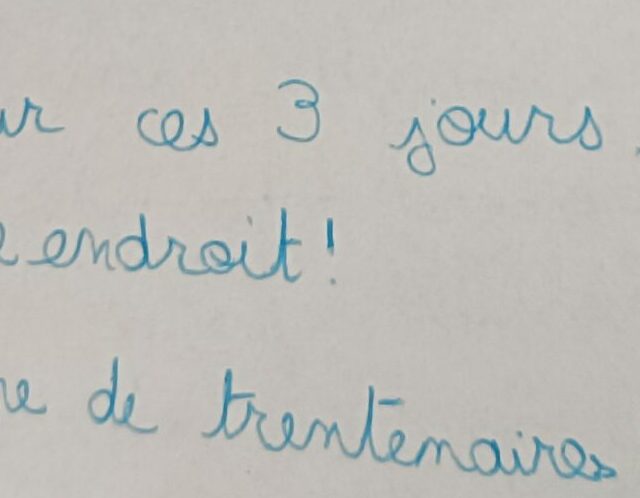 ces 3 jours.
endroit!
de trentenaires